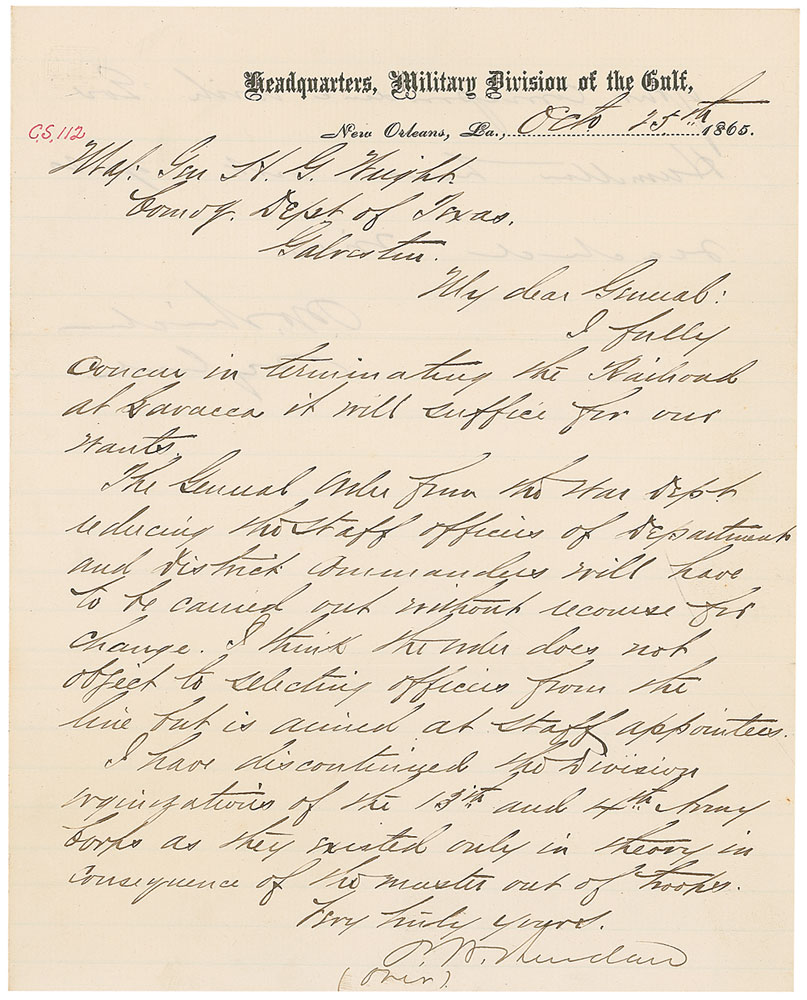 Headquarters, Military Division of the Gulf,
New Orleans, La., Octo 25th 1865.
C.S. 112
Maj: Gen H. G. Wright.
Comdg. Dept of Texas.
Galveston.
My dear General:
I fully
concur in terminating the Railroad
at Lavacca it will suffice for our
wants.
The General Order from the War Dept
reducing the staff officers of Department
and District Commanders will have
to be carried out without recourse for
change. I think the order does not
object to selecting officers from the
line but is aimed at staff appointees.
I have discontinued the Division
organizations of the 13th and 4th Army
Corps as they existed only in theory in
consequence of the muster out of troops.
Very truly yours.
P. H. Sheridan
(over)